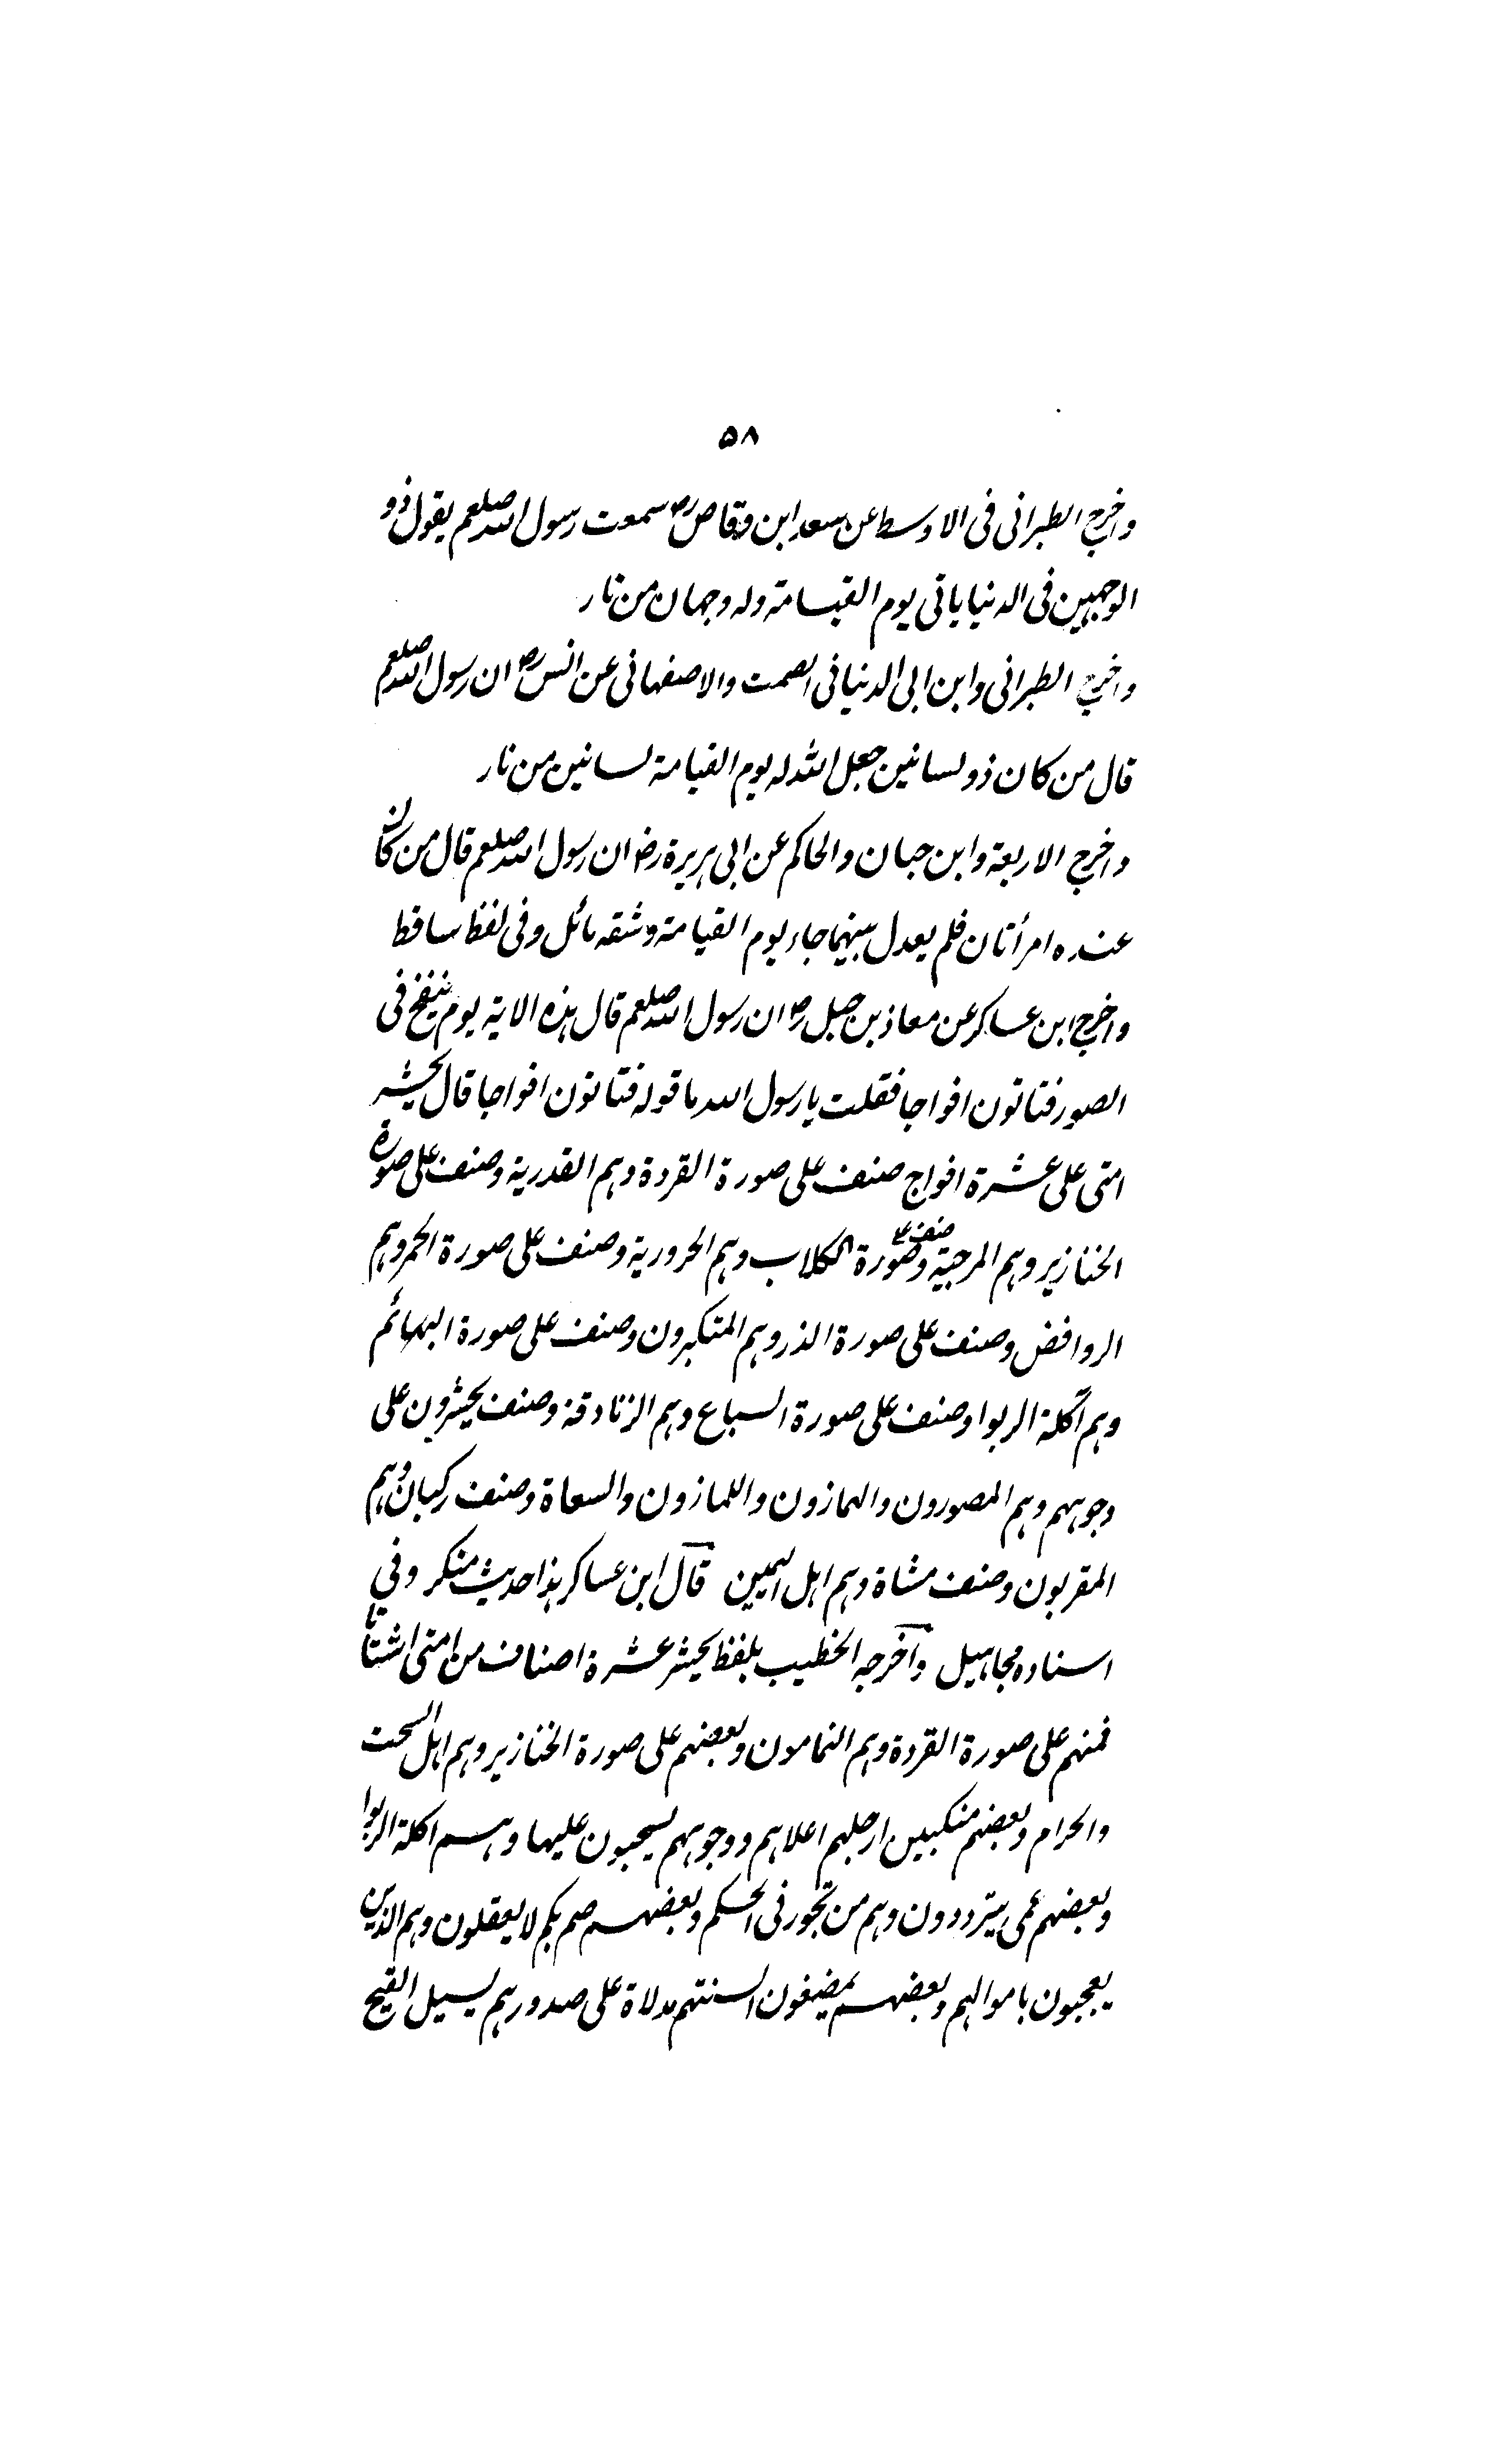 ۵۸
واخرج الطبرانی فی الاوسط عن سعد ابن وقاص رض سمعت رسول الله صلعم یقول ذو
الوجہین فی الدنیا یاتی یوم القیامة وله وجہان من نار
واخرج الطبرانی وابن ابی الدنیا فی الصمت والاصفہانی عن انس رض ان رسول الله صلعم
قال من کان ذو لسانین جعل الله له یوم القیامة لسانین من نار
واخرج الاربعة وابن حبان والحاکم عن ابی ہریرة رض ان رسول الله صلعم قال من کان
عنده امرأتان فلم یعدل بینہما جاء یوم القیامة وشقه مائل وفی لفظ ساقط
واخرج ابن عساکر عن معاذ بن جبل رض ان رسول الله صلعم قال ہذه الایة یوم ینفخ فی
الصور فتاتون افواجا فقلت یا رسول الله ما قوله فتاتون افواجا قال یحشر
امتی علی عشرة افواج صنف علی صورة القردة وہم القدریة وصنف علی صورة
الخنازیر وہم المرجیة وصنف علی صورة الکلاب وہم الحروریة وصنف علی صورة الحمر وہم
الروافض وصنف علی صورة الذر وہم المتکبرون وصنف علی صورة البہائم
وہم اکلة الربوا وصنف علی صورة السباع وہم الزنادقة وصنف یحشرون علی
وجوہہم وہم المصورون والہمازون واللمازون والسعاة وصنف رکبان وہم
المقربون وصنف مشاة وہم اہل الیمین قال ابن عساکر ہذا حدیث منکر وفی
اسناده مجاہیل واخرجه الخطیب بلفظ یحشر عشرة اصناف من امتی اشتاتا
فمنہم علی صورة القردة وہم النمامون وبعضہم علی صورة الخنازیر وہم اہل السحت
والحرام وبعضہم منکبین ارجلہم اعلاہم ووجوہہم یسحبون علیہا وہم اکلة الربوا
وبعضہم عمی یترددون وہم من تجور فی الحکم وبعضہم صم بکم لا یعقلون وہم الذین
یعجبون باموالہم وبعضہم یمضغون السنتہم مدلاة علی صدورہم یسیل القیح